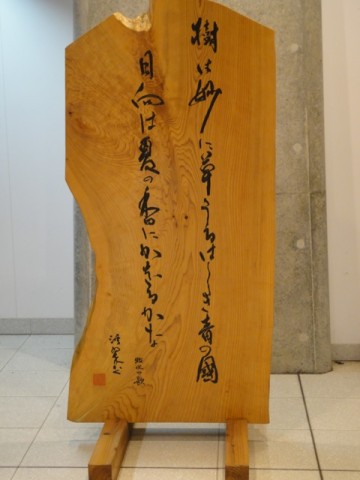 樹は妙に草うるはしき青の國
日向は夏の香にかをるかな
牧水の歌